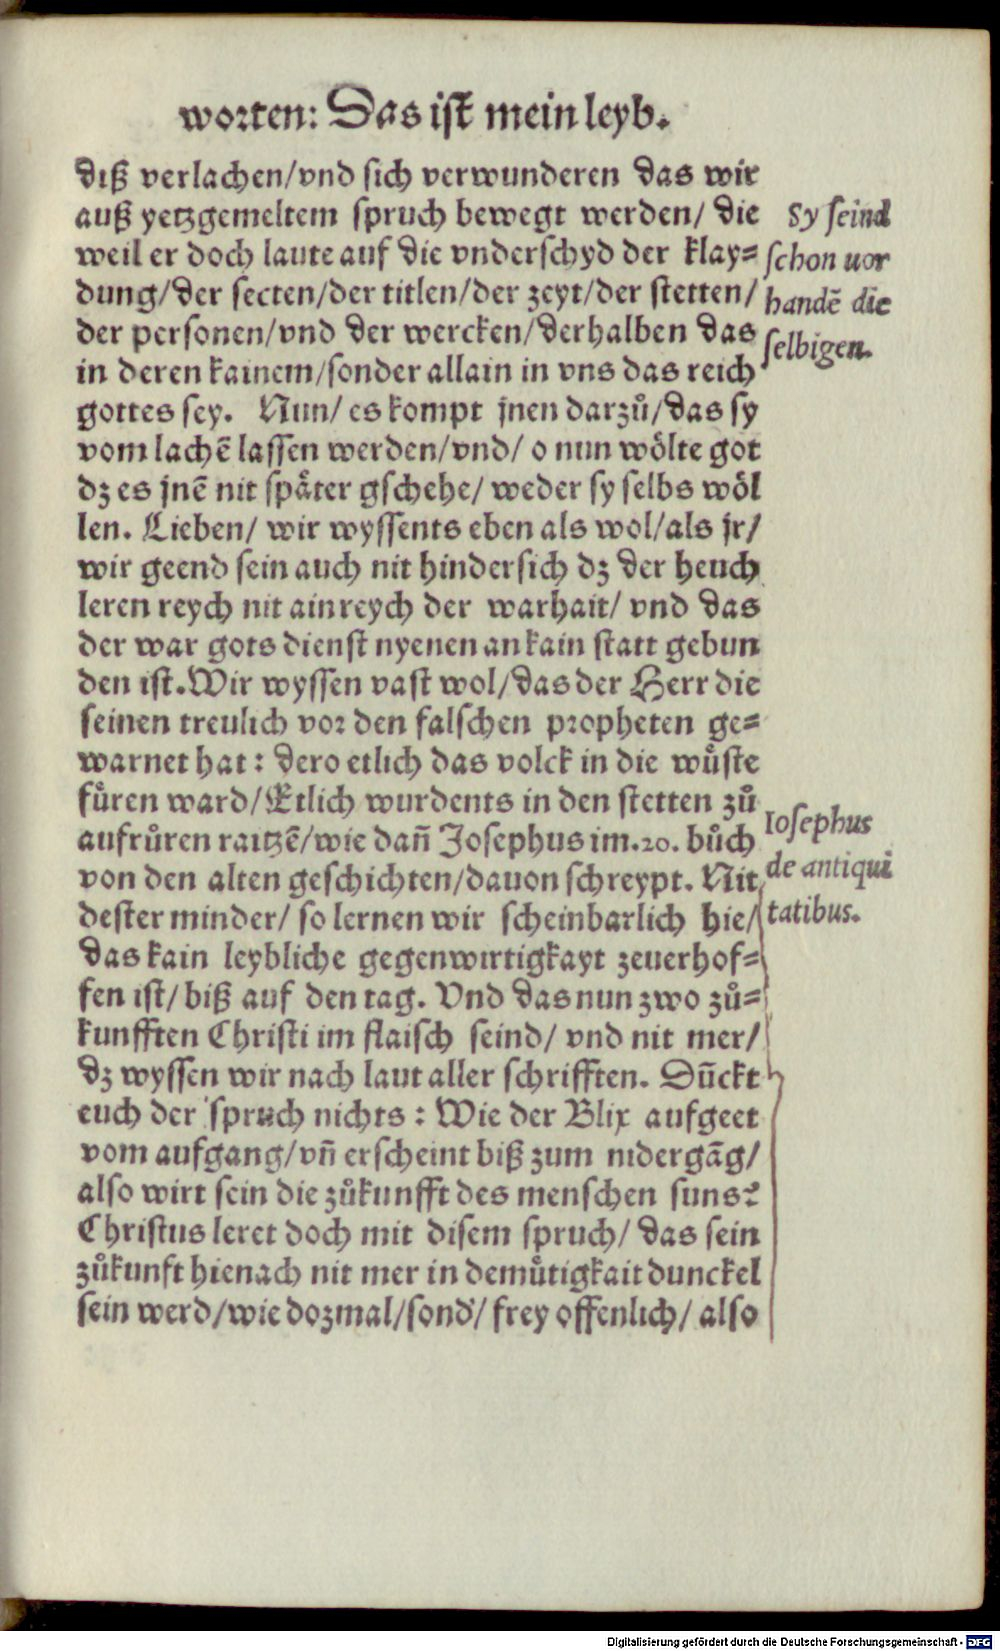 worten: Das ist mein leyb.
diß verlachen/vnd sich verwunderen das wir
auß yetzgemeltem spruch bewegt werden/ die
weil er doch laute auf die vnderschyd der klay=
dung/der secten/der titlen/der zeyt/der stetten/
der personen/vnd der wercken/derhalben das
in deren kainem/sonder allain in vns das reich
gottes sey. Nun/ es kompt jnen darzů/das sy
vom lachē lassen werden/vnd/ o nun wölte got
dz es jnē nit später gschehe/ weder sy selbs wöl
len. Lieben/ wir wyssents eben als wol/als jr/
wir geend sein auch nit hindersich dz der heuch
leren reych nit ain reych der warhait/ vnd das
der war gots dienst nyenen an kain statt gebun
den ist. Wir wyssen vast wol/das der Herr die
seinen treulich vor den falschen propheten ge=
warnet hat: dero etlich das volck in die wůste
fůren ward/Etlich wurdents in den stetten zů
aufrůren raitzē/wie dañ Josephus im.20. bůch
von den alten geschichten/dauon schreypt. Nit
dester minder/ so lernen wir scheinbarlich hie/
das kain leybliche gegenwirtigkayt zeuerhof=
fen ist/ biß auf den tag. Vnd das nun zwo zů=
kunfften Christi im flaisch seind/ vnd nit mer/
dz wyssen wir nach laut aller schrifften. Dūckt
euch der spruch nichts: Wie der Blix aufgeet
vom aufgang/vñ erscheint biß zum nidergāg/
also wirt sein die zůkunfft des menschen suns?
Christus leret doch mit disem spruch/ das sein
zůkunft hienach nit mer in demůtigkait dunckel
sein werd/wie dozmal/sond'/ frey offenlich/ also
Sy seind
schon uor
handē die
selbigen.
Iosephus
de antiqui
tatibus.
Digitalisierung gefördert durch die Deutsche Forschungsgemeinschaft - DFG